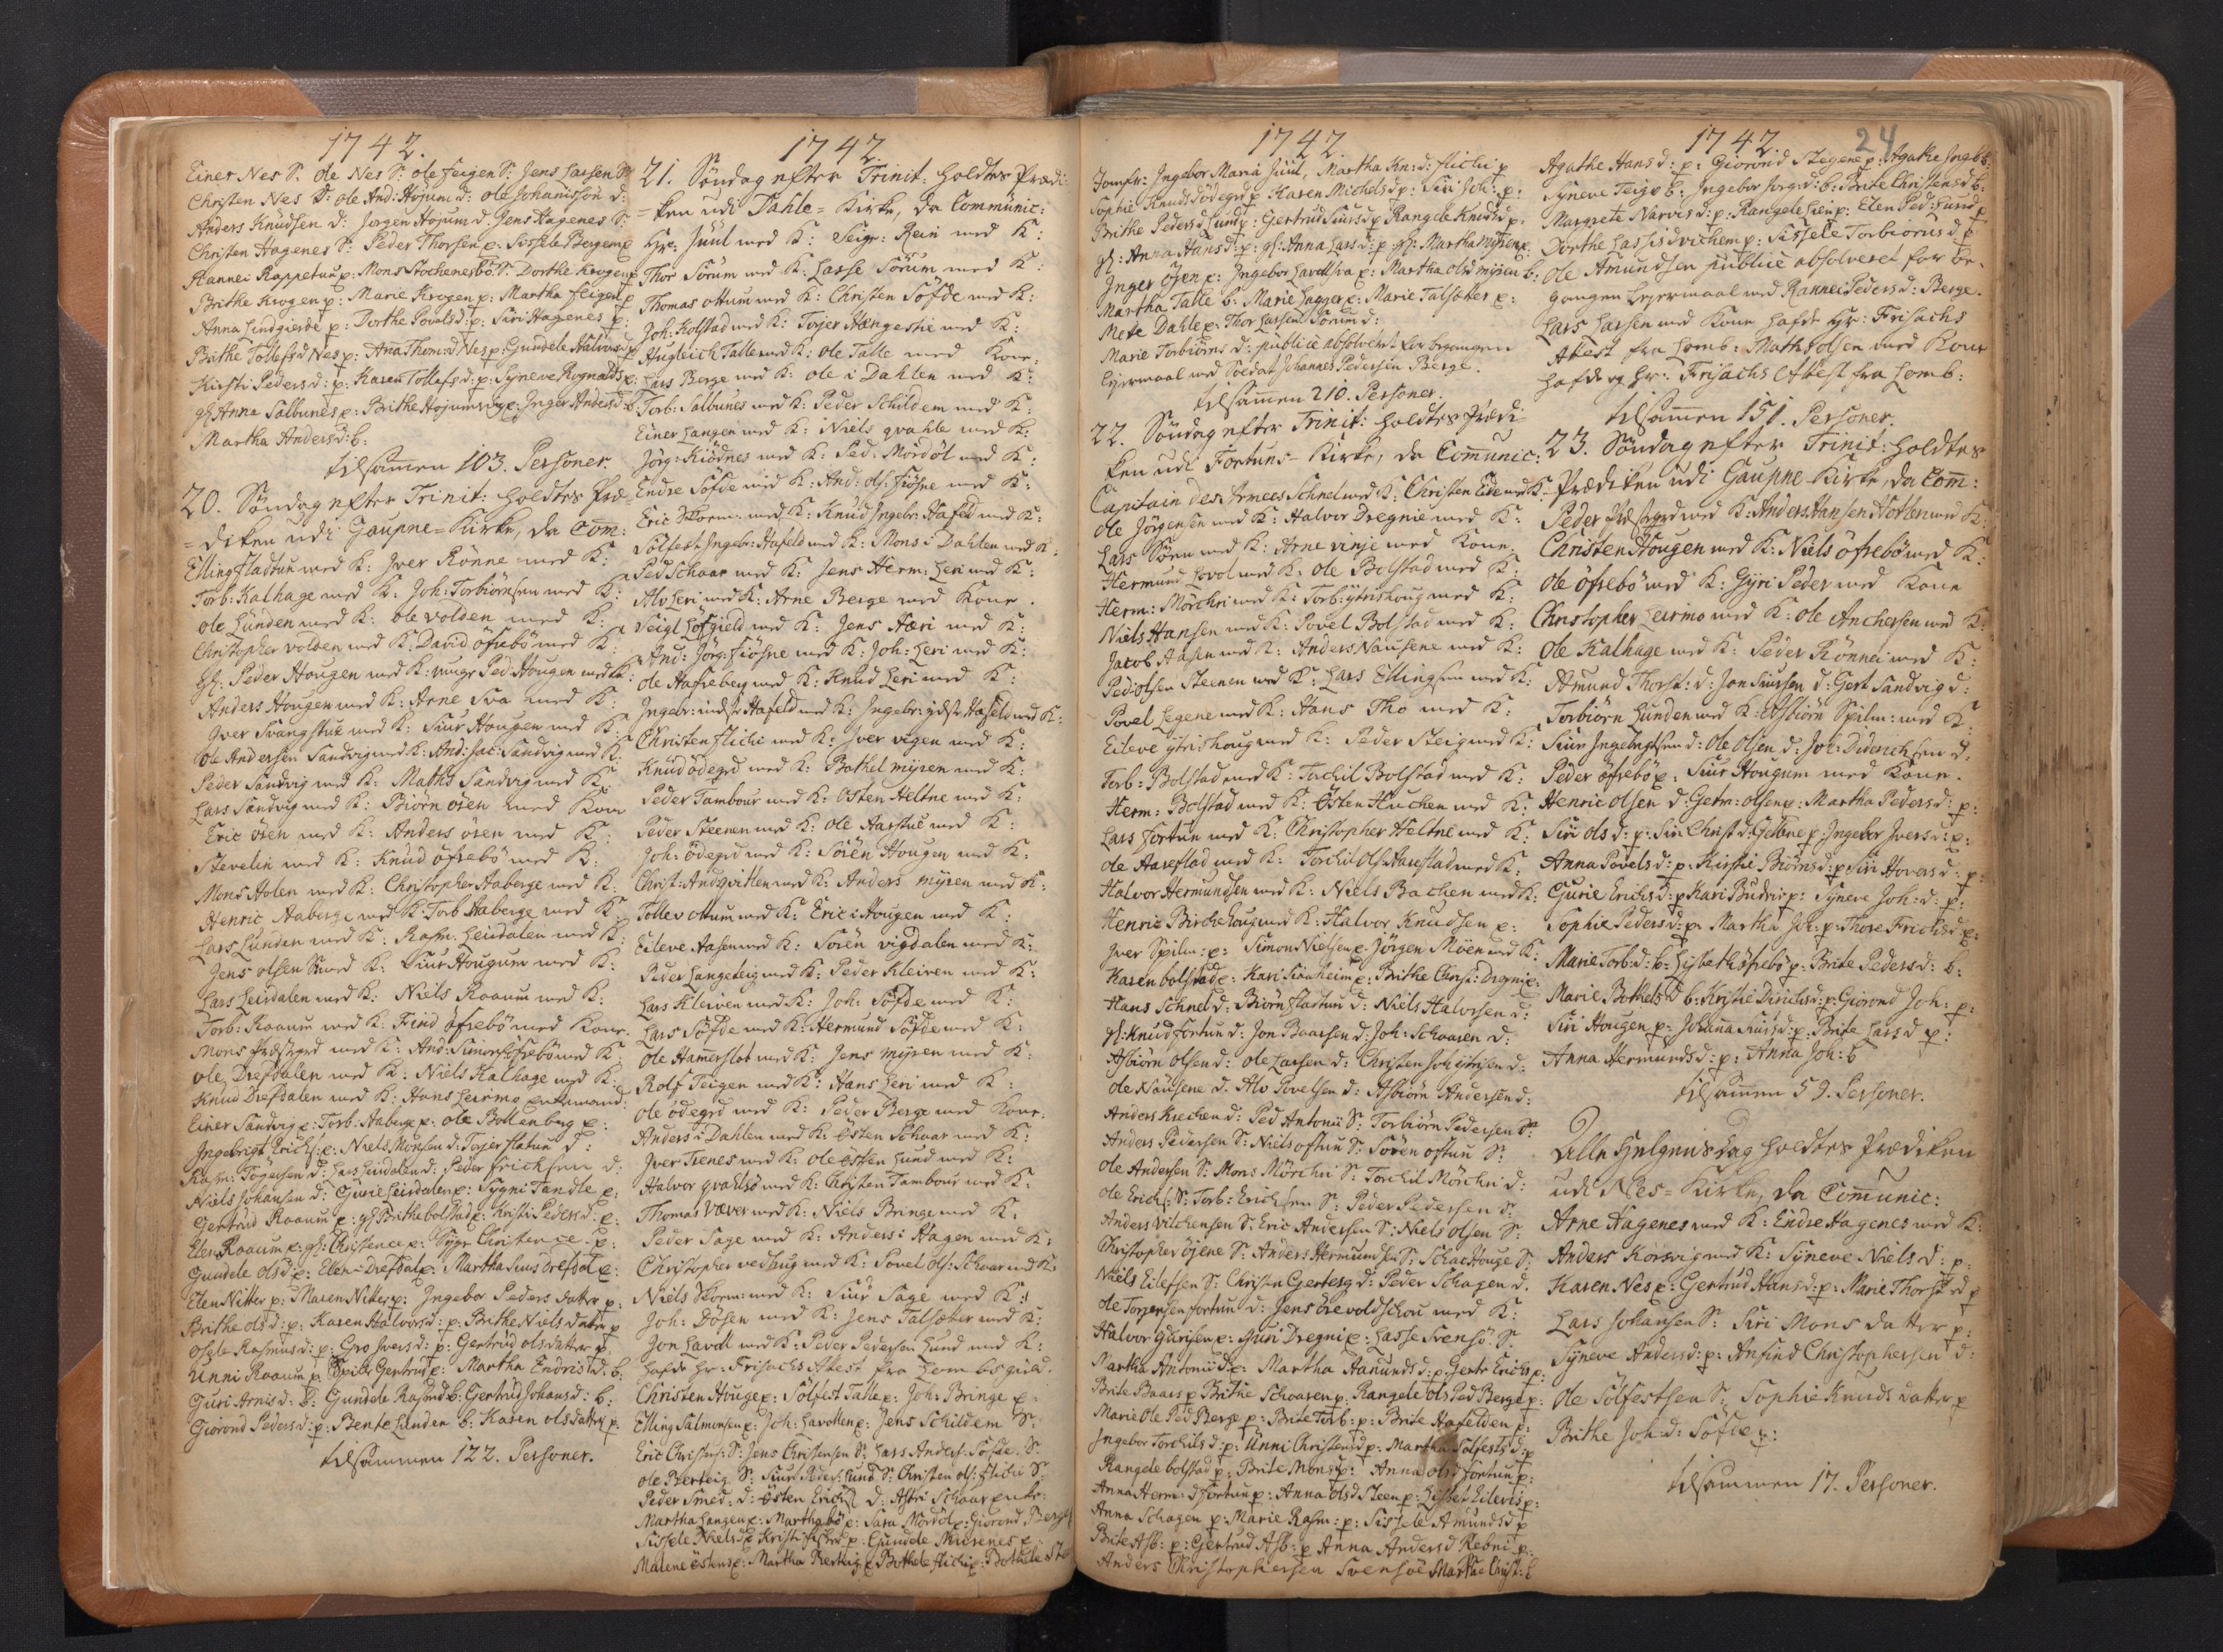 1742.
Einer Nes S. ole Nes S: ole feigen S: Jens Larsen S:
Christen Nes S: ole And: Højum d: ole Johannissøn d:
Anders Knudsen d: Jørgen Højum d. Jens Hagenes S:
Christen Hagenes S: Peder Thorsen p. Sissele Bergem p
Rannei Rappetun p: Mons Stochenesbø S: Dorthe Krogen p
Brithe Krogen p: Marie Krogen p: Martha feigen p
Anna Lindgierde p: Dorthe Povelsd: p: Siri Hagenes p:
Brithe Tollefsd Nes p: Anna Thom:d Nes p: Gundele Halvorsd p
Kirsti Pedersd: p: Karen Tollefsd: p: Syneve Rognalds p:
gl Anna Salbunes p: Brithe Højums p: Inger Andersd: b
Martha Andersd: b:
tilsammen 103. Personer.
20. Søndag efter Trinit: holdtes Præ-
-diken udi Gaupne-Kirke, da Com:
Elling fladtun med K: Iver Rønne med K:
Torb: Kalhage med K: Joh: Torbiørnsen med K:
ole Lunden med K: ole volden med K:
Christopher volden med K: David øfrebø med K:
Gl: Peder Hougen med K: unge Ped Hougen med K:
Anders Hougen med K: Arne Sva med K:
Iver Svangstue med K: Siur Hougen med K:
ole Andersen Sandvig med K: And: Jac: Sandvig med K:
Peder Sandvig med K: Maths Sandvig med K:
Lars Sandvig med K: Biørn øsen med Kone
Eric øsen med K: Anders øsen med K:
Stevelin med K: Knud øfrebø med K:
Mons Holen med K: Christopher Aaberge med K:
Henric Aaberge med K: Torb Aaberge med K:
Lars Lunden med K: Rasm. Leirdalen med K:
Jens olsen med K: Siur Hougum med K:
Lars Leirdalen med K: Niels Roaum med K:
Torb: Roaum med K: Find øfrebø med Kone.
Mons Præstegrd med K: And: Simons øfrebø med K:
ole Drefdalen med K: Niels Kalhage med K:
Knud Drefdalen med K: Hans Leirmo enkemand:
Einer Sandvig p: Torb: Aaberge p: ole Bollenberg p:
Ingebrigt Erichs: p: Niels Monsen d: Torjer flatun d:
Rasm: Tøgersen d: Lars Leirdalen d: Peder Frichsen d:
Niels Johansen d: Gurie Leirdalen p: Sygni Tandle p:
Gertrud Roaum p: gl Brithe bolstad p: Kristi Pedersd: p:
Elen Roaum p: gl: Christence p: Syge Christence: p:
Gundele olsd p: Elen Drefdal p: Martha Siurs Drefdal p:
Elen Nitter p: Maren Nitter p: Ingebor Peders datter p:
Brithe olsd: p: Karen Halvorsd: p: Brithe Niels datter p
Rasmusd: p: Gro Iversd: p: Gertrud olsdatter p:
Unni Roaum p: Gertrud p: Martha Endrisd: b:
Guri Arnisd: b: Gundele Rasmd b: Gertrud Johansd: b:
Giorond Pedersd: p: Bente Lunden b: Karen olsdatter p:
tilsammen 122. Personer.
1742.
21. Søndag efter Trinit: holdtes Prædi-
-ken udi Dahle-Kirke, da Communic:
Hr: Juul med K: Seigr: Rein med K:
Thor Sørum med K: Lasse Sørum med K:
Thomas ottum med K: Christen Søfde med K:
Joh: Kolstad med K: Torjer Hængestie med K:
Hugleich Talle med K: ole Talle med Kone.
Lars Berge med K: ole i Dahlen med K:
Torb: Salbunes med K: Peder Schildem med K:
Einer Langen med K: Niels qvahle med K:
Jørg: Kiødnes med K: Ped: Mordøl med K:
Endre Søfde med K: And: ols: fiøsne med K:
Eric med K: Knud Ingebr: Hafeld med K:
Sølfest Ingebr: Hafeld med K: Mons i Dahlen med K:
Ped Schaar med K: Jens Herm: Leri med K:
Alv Leri med K: Arne Berge med Kone.
Veigl Løfgield med K: Jens Aeri med K:
And: Jørg: fiøsne med K: Joh: Leri med K:
ole Hafreberg med K: Knud Leri med K:
Ingebr: indste Hafeld med K: Ingebr: ydste Hafeld med K:
Christen flichi med K: Iver vigen med K:
Knud ødegrd med K: Bothel mijren med K:
Peder Tambour med K: Østen Heltne med K:
Peder Steenen med K: Ole Aarstue med K:
Joh: ødegrd med K: Søren Hougen med K.
Christ: Ands qvitten med K: Anders mijren med K:
Tollev ottum med K: Eric i Hougen med K:
Eileve Aasen med K: Søren vigdalen med K:
Peder Langeteig med K: Peder Kleiven med K:
Lars Kleiven med K: Joh: Søfde med K:
Lars Søfde med K: Hermund Søfde med K:
Ole Hamerslot med K: Jens mijren med K:
Rolf Teigen med K: Hans Leri med K:
ole ødegrd med K: Peder Berge med Kone.
Anders i Dahlen med K: Østen Schaar med K:
Iver Trenes med K: ole østen Lund med K:
Halvor qvahlsø med K: Christen Tambour med K:
Thomas Væver med K: Niels Bringe med K:
Peder Sage med K: Anders i Hagen med K:
Christopher vedhug med K: Povel ols: Schaar med K:
Niels med K: Siur Sage med K:
Joh: Døsen med K: Jens Talsæter med K:
Jon Havell med K: Peder Pedersen Lund med K:
hafde Hr: Frisachs Attest fra Lom
Christen Houge p: Sølfest Talle p: Joh: Bringe p:
Elling Salmonsen p: Joh: Havellen p: Jens Schildem S:
Eric Christens: S: Jens Christensen S: Lars Anders: Søfde: S:
ole Berteig S: Siur Peders: Lund S: Christen ols: flichi S:
Peder Smed: d: Østen Erichs d: Astri Schaar enke:
Martha Langen p: Martha bø p: Sara Mordøl p: Giorond Berge
Sissele Nielsd p Kristi p: Gundele p
Malene østens p: Martha Berteig p Bothele flichi p: Bothele Ste
1742.
Jomfr: Ingebor Maria Juul, Martha Kn:d: flichi p
Sophie Knuds ødegrd p Karen Michelsd p: Siri Joh: p:
Brithe Pedersd Lund p: Gertrud Siursd p Rangele Knudsd p:
gl: Anna Hansd: p: gl: Anna Lars d: p gl: Martha mijren p:
Inger øsen p: Ingebor Havellsva p: Martha olsd mijren b:
Martha Talle b: Marie Hagger p: Marie Talsætter p:
Mete Dahle p: Thor Larsen Sørum d:
Marie Torbiørns d: publice absolveret for begangen
lejermaal med Soldat Johannes Pedersen Berge.
tilsammen 210. Personer.
22. Søndag efter Trinit: holdtes Prædi-
ken udi Fortuns-Kirke, da Communic:
Capitain des Armees Schnel med K: Christen Eide med K:
ole Jørgensen med K: Halvor Dregnie med K:
Lars Søren med K: Arne vinje med Kone.
Hermund Hovol med K: ole Bolstad med K:
Herm: Mørchri med K: Torb: ytrishoug med K:
Niels Hansen med K: Povel Bolstad med K:
Jacob Aasen med K: Anders Nausene med K:
Ped: olsen Steenen med K: Lars Ellingsen med K:
Povel Hegene med K: Hans Tho med K:
Eileve ytrishoug med K: Peder Steig med K:
Torb: Bolstad med K: Torchil Bolstad med K:
Herm: Bolstad med K: Østen Huchen med K:
Lars Fortun med K: Christopher Heltne med K:
ole Harestad med K: Torchil ols Harestad med K:
Halvor Hermundsen med K: Niels Bachen med K:
Henric Birchehoug med K: Halvor Knudsen p:
Iver Spilm: p: Simon Nielsen p. Jørgen Moen med K:
Karen bolstad p: Kari p: Brithe Christ: Dregni p:
Hans Schnel d: Biørn fladtun d: Niels Halvorsen d:
gl: Knud Fortun d: Jon Baarsen d: Joh: Schaaren d:
Asbiørn olsen d: ole Larsen d: Christen Joh d:
ole Nausene d. Alv Povelsen d: Asbiørn Andersen d:
Anders Krechen d: Ped Antonii S: Torbiørn Pedersen S:
Anders Pedersen S: Niels oftun S: Søren oftun S:
Ole Andersen S: Mons Mørchri S: Torchil Mørchri d:
ole Erichs: S: Torb: Erichsen S: Peder Pedersen d:
Anders Vilchensen S: Eric Andersen S: Niels olsen S:
Christopher øjene S: Anders Hermundsen S: Schae Houge S:
Niels Eilefsen S: Christen d: Peder Schagen d.
ole Torgersen fortun d: Jens ørevoldschou med K:
Halvor Gurisen p: Guri Dregni p: Lasse Svensø: S:
Martha Antonii d: p: Martha Hamunds d: p: Gertr Erichs p:
Brite Baars p Brithe Schaaren p: Rangele ols Ped Berge p:
Marie Ole Ped Berge p: Brite Torb: p: Brite Hafelden p:
Ingebor Torchils d: p: Unni Christensd p: Martha Sølfests d: p
Rangele bolstad p: Brite Mons p: Anna olsd fortun p:
Anna Herm: d fortun p: Anna olsd Steen p: Lisbet Eilevis p:
Anna Schagen p: Marie Rasm: p: Sissele Amundsd p
Brite Asb: p: Gertrud Asb: p Anna Andersd Rebni p:
Anders Christophersen Svensøe Martha Christ: b
1742. 24
Agathe Hans d: p: Giorond Stegene p: Agathe Ingeb
Syneve Teige b: Ingebor Jorg:d: b: Brite Christensd b:
Margrete Narvisd: p: Rangele p: Elen Ped: Lund p
Dorthe Lassisd vichem p: Sissele Torbiørns d p
Ole Amundsen publice absolveret for be-
gangen lejermaal med Rannei Peders d: Berge.
Lars Larsen med Kone hafde Hr: Frisachs
Attest fra Lomb: Maths olsen med Kone
hafde og Hr: Frisachs Attest fra Lomb:
tilsammen 151. Personer.
23. Søndag efter Trinit: holdtes
Prædiken udi Gaupne Kirke, da Com:
Peder Præstegrd med K: Anders Hansen Hollen med K:
Christen Hougen med K: Niels øfrebø med K:
ole øfrebø med K: Gyri Peder med Kone
Christopher Leirmo med K: ole Anchersen med K:
ole Kalhage med K: Peder Rønnei med K:
Amund Thorst: d: Jon Siursen d: Gert Sandvig d:
Torbiørn Lunden med K: Asbiørn Spilm: med K:
Siur Ingebrigtsen d: ole olsen d: Joh: Diderichsen d:
Peder øfrebø p. Siur Hougum med Kone.
Henric olsen d: Getm: olsen p: Martha Pedersd: p:
Siri ols d: p: Siri Christ d: p: Ingebor Iversd: p:
Anna Povelsd: p: Kirstie Biørnsd: p Siri Hovers d: p:
Gurie Erichsd: p Kari p: Syneve Joh: d: p:
Sophie Pedersd: p: Martha Joh: p: Thore Frichsd p:
Marie Torb:d: b: Lisbeth øfrebø p: Brite Pedersd: b:
Marie Bothelsd b: Kristie p: Giorond Joh: p:
Siri Hougen p: Johanna Siursd: p: Brite Lars d p:
Anna Hermundsd: p: Anna Joh: b
tilsammen 59. Personer.
Alle Helgens Dag holdtes Prædiken
udi Nes-Kirke, da Communic:
Arne Hagenes med K: Endre Hagenes med K:
Anders Korsvig med K: Syneve Niels d: p:
Karen Nes p: Gertrud Hans d: p: Marie Thorst d p
Lars Johansen S: Siri Mons datter p:
Syneve Andersd: p: Anfind Christophersen d:
ole Sølfestsen S: Sophie Knuds datter p
Brithe Joh:d: Søfde p:
tilsammen 17. Personer.